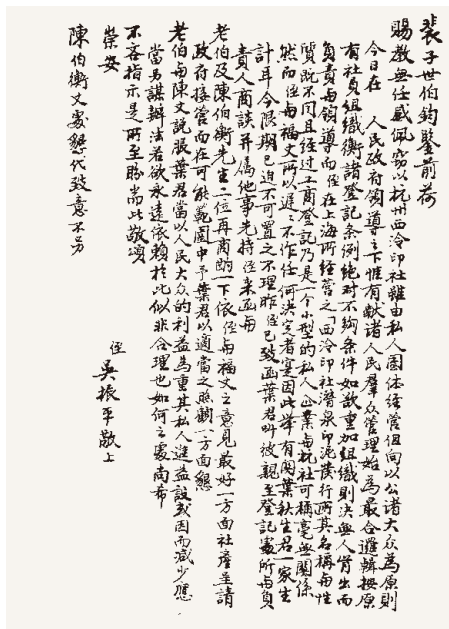 裴子世伯鈞鑒前荷
賜教無任感佩竊以杭州西泠印社雖由私人團体經營但向以公諸大众為原則
今日在 人民政府領導之下惟有獻諸人民羣众管理始為最合邏輯按原
有社員組織衡諸登記条例絕对不夠条件如欲重加組織則決無人肯出而
負責与領導而侄在上海所經營之「西泠印社潛泉印泥發行所」其名稱与性
質既不同且经过工商登記乃是一个小型的私人企業与杭社可稱毫無關係
然而侄与福文所以遲遲不作任何決定者寔因此舉有関葉秋生君一家生
計耳今限期已迫不可置之不理昨侄已致函葉君叫彼親至登記處所与負
責人商談并屬他事先持侄来函与
老伯及陳伯衡先生二位再商酌一下依侄与福文之意見最好一方面社產呈請
政府接管而在可能範圍中予葉君以適當之照顧一方面懇
老伯与陳丈説服葉君當以人民大众的利益為重其私人進益設或因而減少應
當另謀辦法若欲永遠依賴於此似非合理也如何之處尚希
不吝指示是所至盼耑此敬頌
榮安
侄 吳振平敬上
陳伯衡丈處懇代致意不另